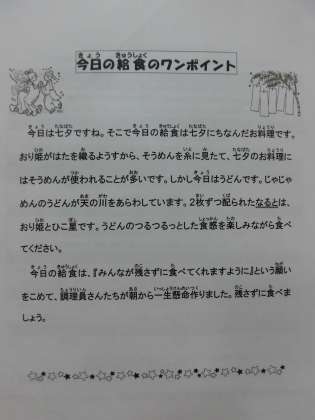 今日の給食のワンポイント
今日は七夕ですね。そこで今日の給食は七夕にちなんだお料理です。
おり姫がはたを織るようすから、そうめんを糸に見たて、七夕のお料理に
はそうめんが使われることが多いです。しかし今日はうどんです。じゃじゃ
めんのうどんが天の川をあらわしています。2枚ずつ配られたなるとは、
おり姫とひこ星です。うどんのつるつるっとした食感を楽しみながら食べ
てください。
今日の給食は、『みんなが残さずに食べてくれますように』という願い
をこめて、調理員さんたちが朝から一生懸命作りました。残さずに食べま
しょう。